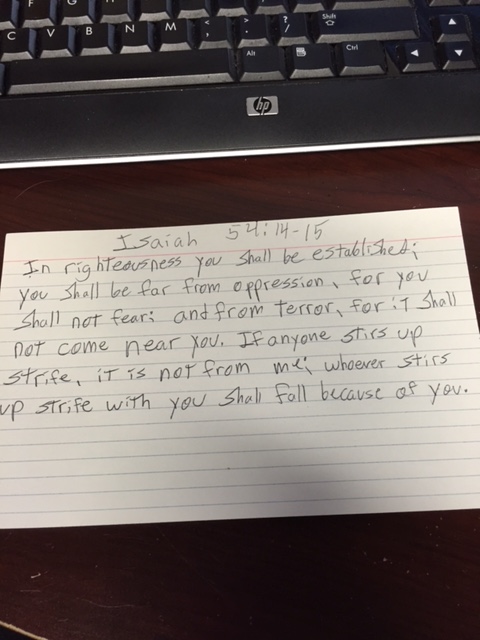 F G
C V B N M < , > . ? / Shift
Alt Ctrl
hp
Isaiah 54:14-15
In righteousness you shall be established;
you shall be far from oppression, for you
shall not fear; and from terror, for it shall
not come near you. If anyone stirs up
strife, it is not from me; whoever stirs
up strife with you shall fall because of you.